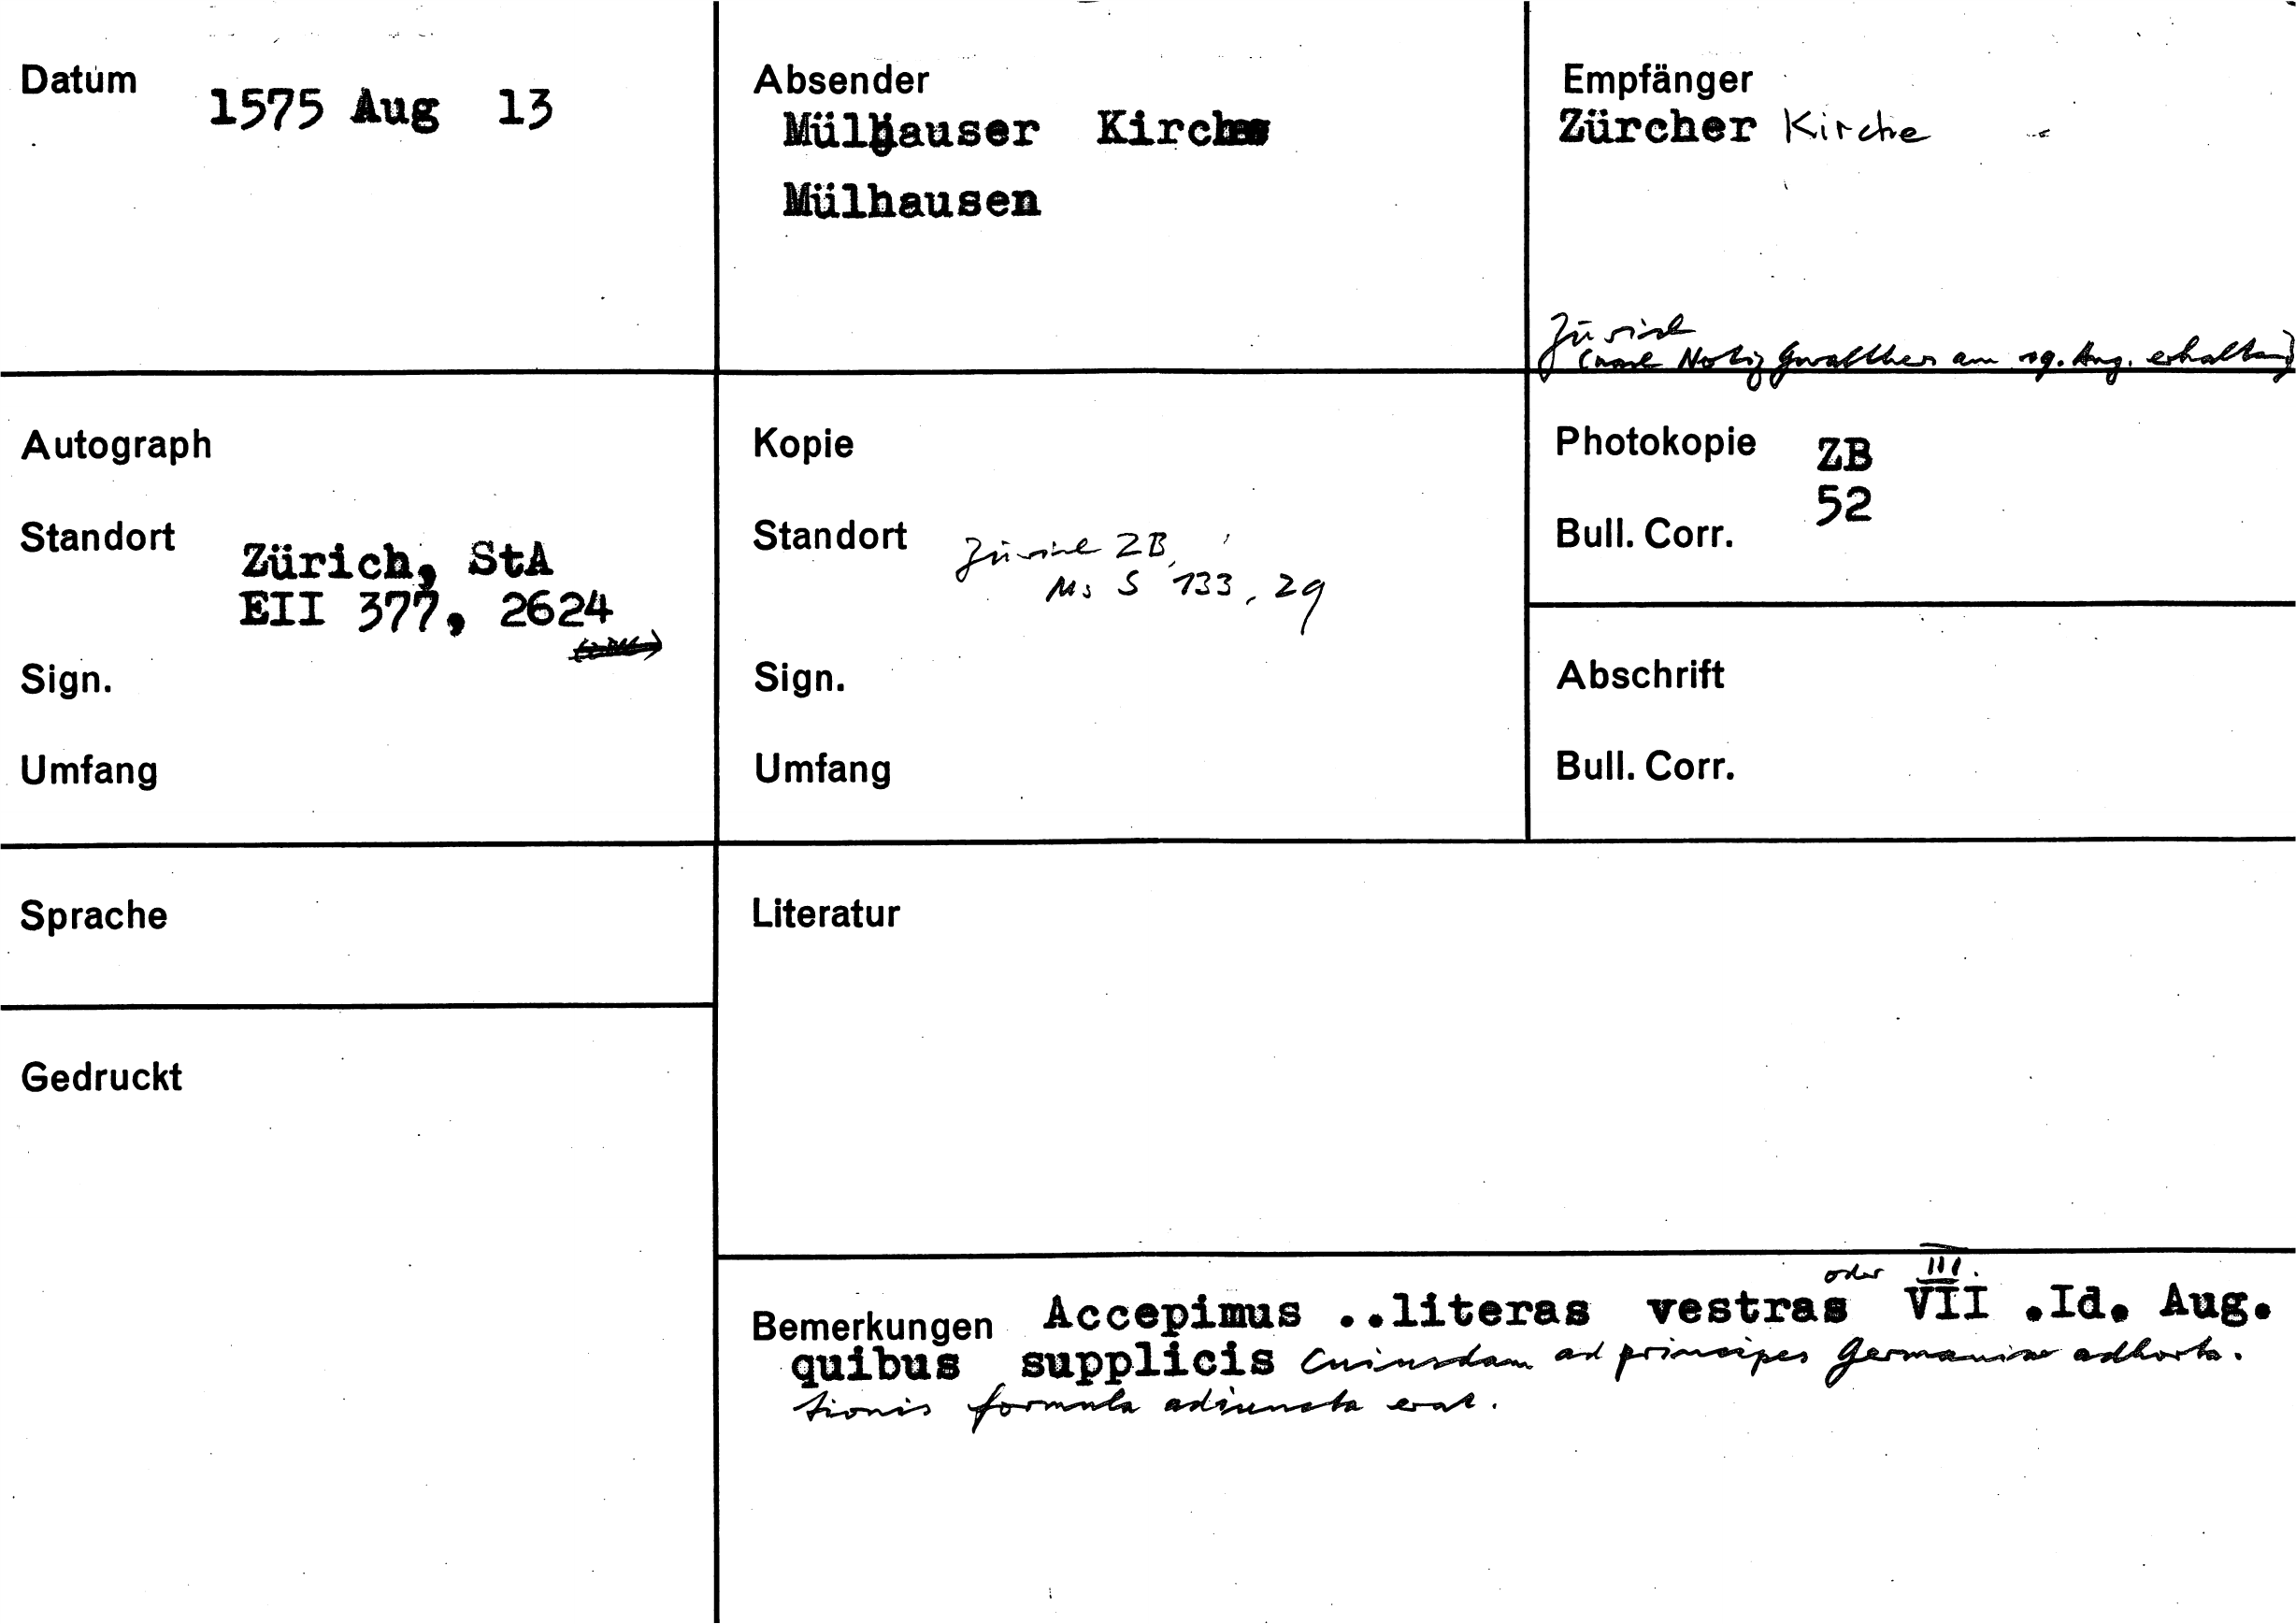 Datum
1575 Aug 13
Absender
Mülhauser Kirche
Mülhausen
Empfänger
Zürcher Kirche
Zürich
(nach Notiz Gwalthers am 19. Aug. erhalten)
Autograph
Standort
Zürich, StA
EII 377, 2624
Sign.
Umfang
Kopie
Standort
Zürich ZB,
Ms S 133, 29
Sign.
Umfang
Photokopie ZB
52
Bull. Corr.
Abschrift
Bull. Corr.
Sprache
Gedruckt
Literatur
oder III.
Bemerkungen Accepimus ..literas vestras VII .Id. Aug.
quibus supplicis cuiusdam ad principes Germaniae adhorta-
tionis formula adiuncta erat.